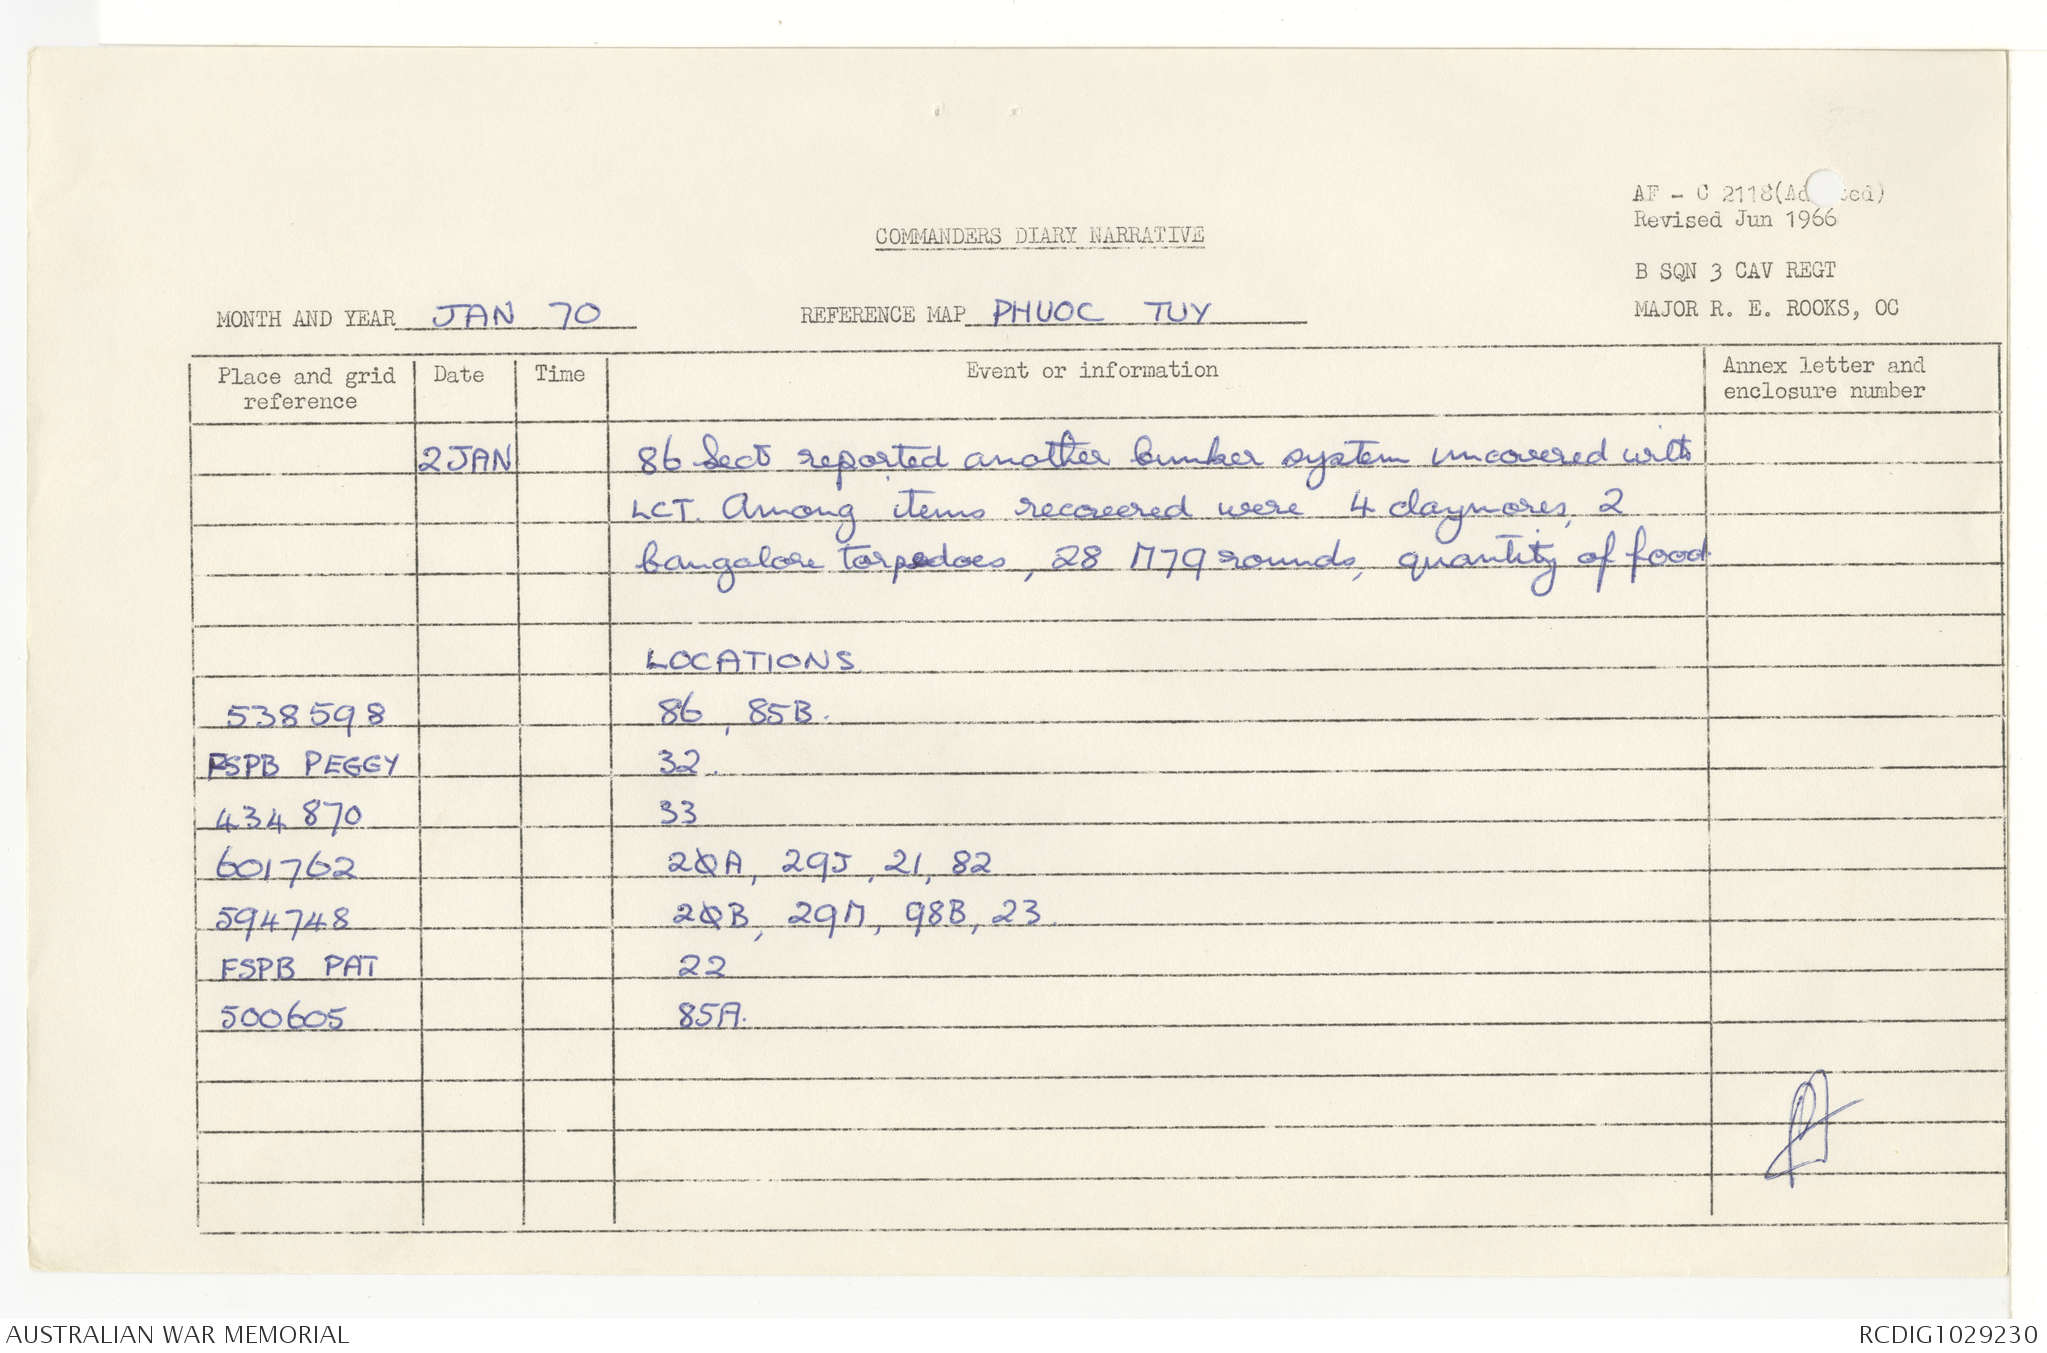 AF - C 2118(Ad ted)
Revised Jun 1966
COMMANDERS DIARY NARRATIVE
B SQN 3 CAV REGT
MONTH AND YEAR JAN 70 REFERENCE MAP PHUOC TUY MAJOR R. E. ROOKS, OC
Place and grid reference Date Time Event or information Annex letter and enclosure number
2 JAN 86 Sect reported another bunker system uncovered with
LCT. Among items recovered were 4 claymores, 2
bangalore torpedoes, 28 M79 rounds, quantity of food
LOCATIONS
538598 86, 85B.
FSPB PEGGY 32.
434 870 33
601762 20A, 29J, 21, 82
594748 20B, 29M, 98B, 23.
FSPB PAT 22
500605 85A.
AUSTRALIAN WAR MEMORIAL RCDIG1029230